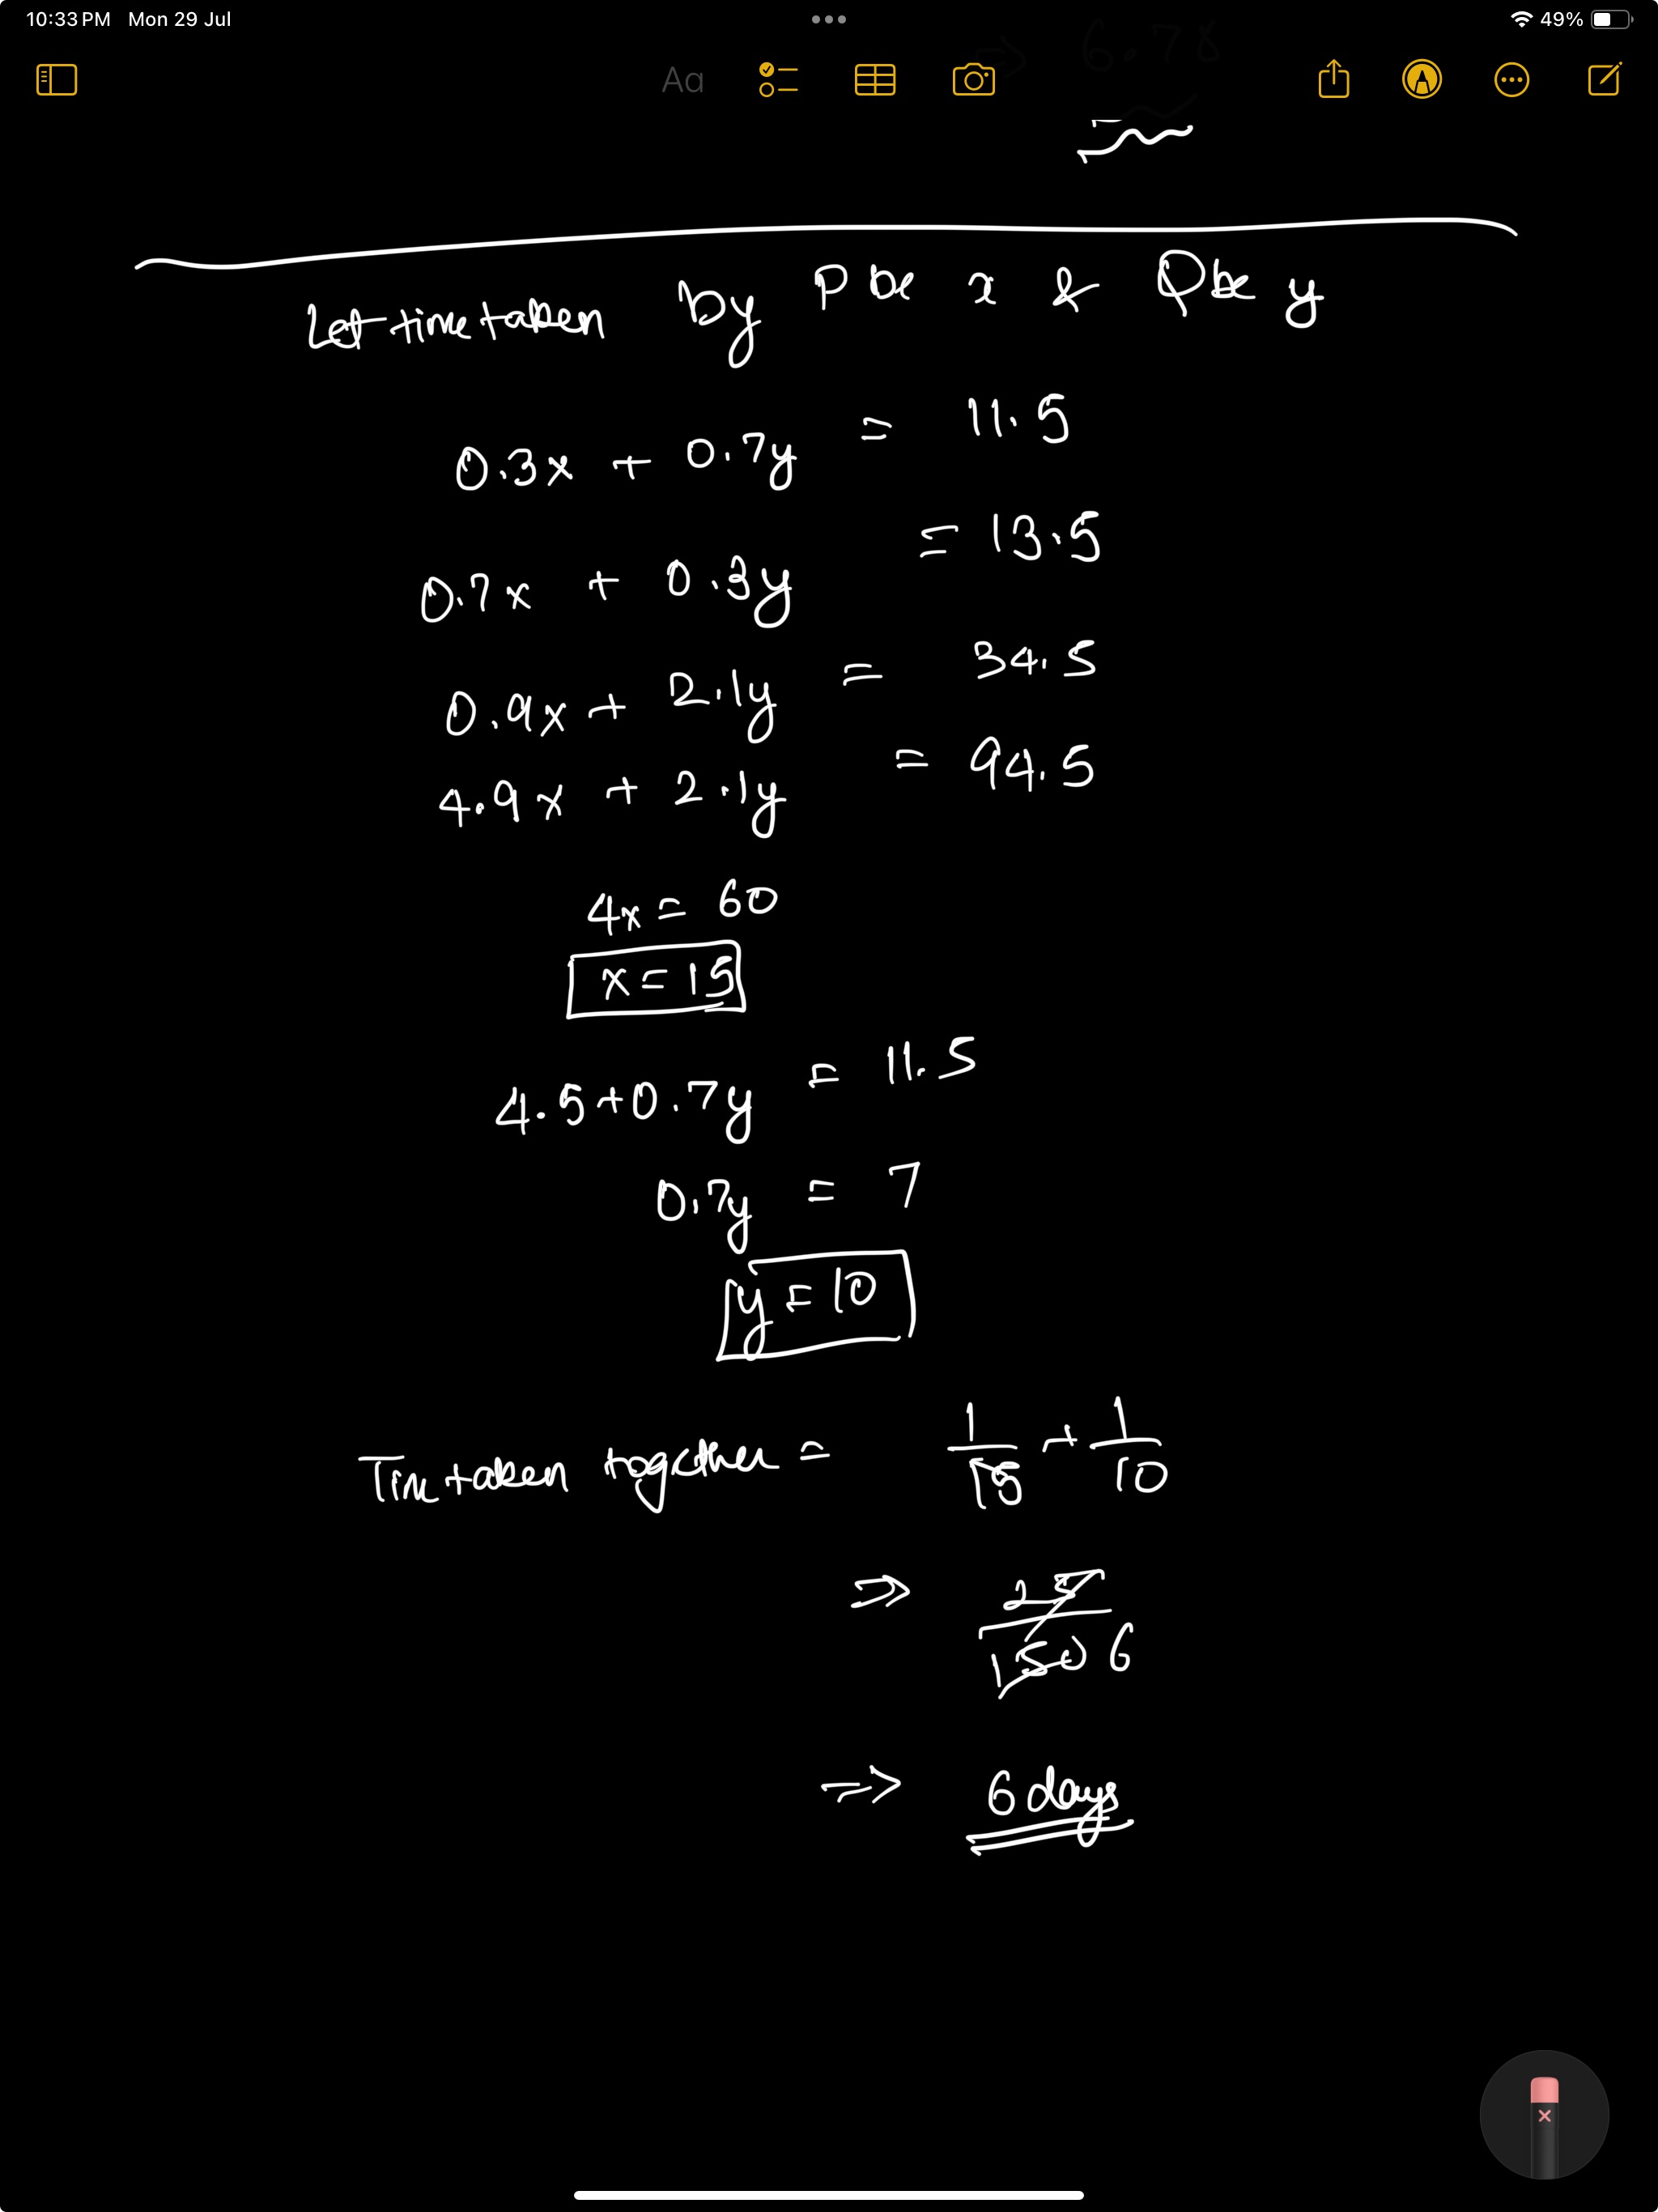 10:33 PM Mon 29 Jul
49%
⇒ 6.78
Aa
Let time taken by P be x & Q be y
0.3x + 0.7y = 11.5
0.7x + 0.3y = 13.5
0.9x + 2.1y = 34.5
4.9x + 2.1y = 94.5
4x = 60
x = 15
4.5 + 0.7y = 11.5
0.7y = 7
y = 10
Time taken together = 1/15 + 1/10
⇒ 25/150 6
⇒ 6 days